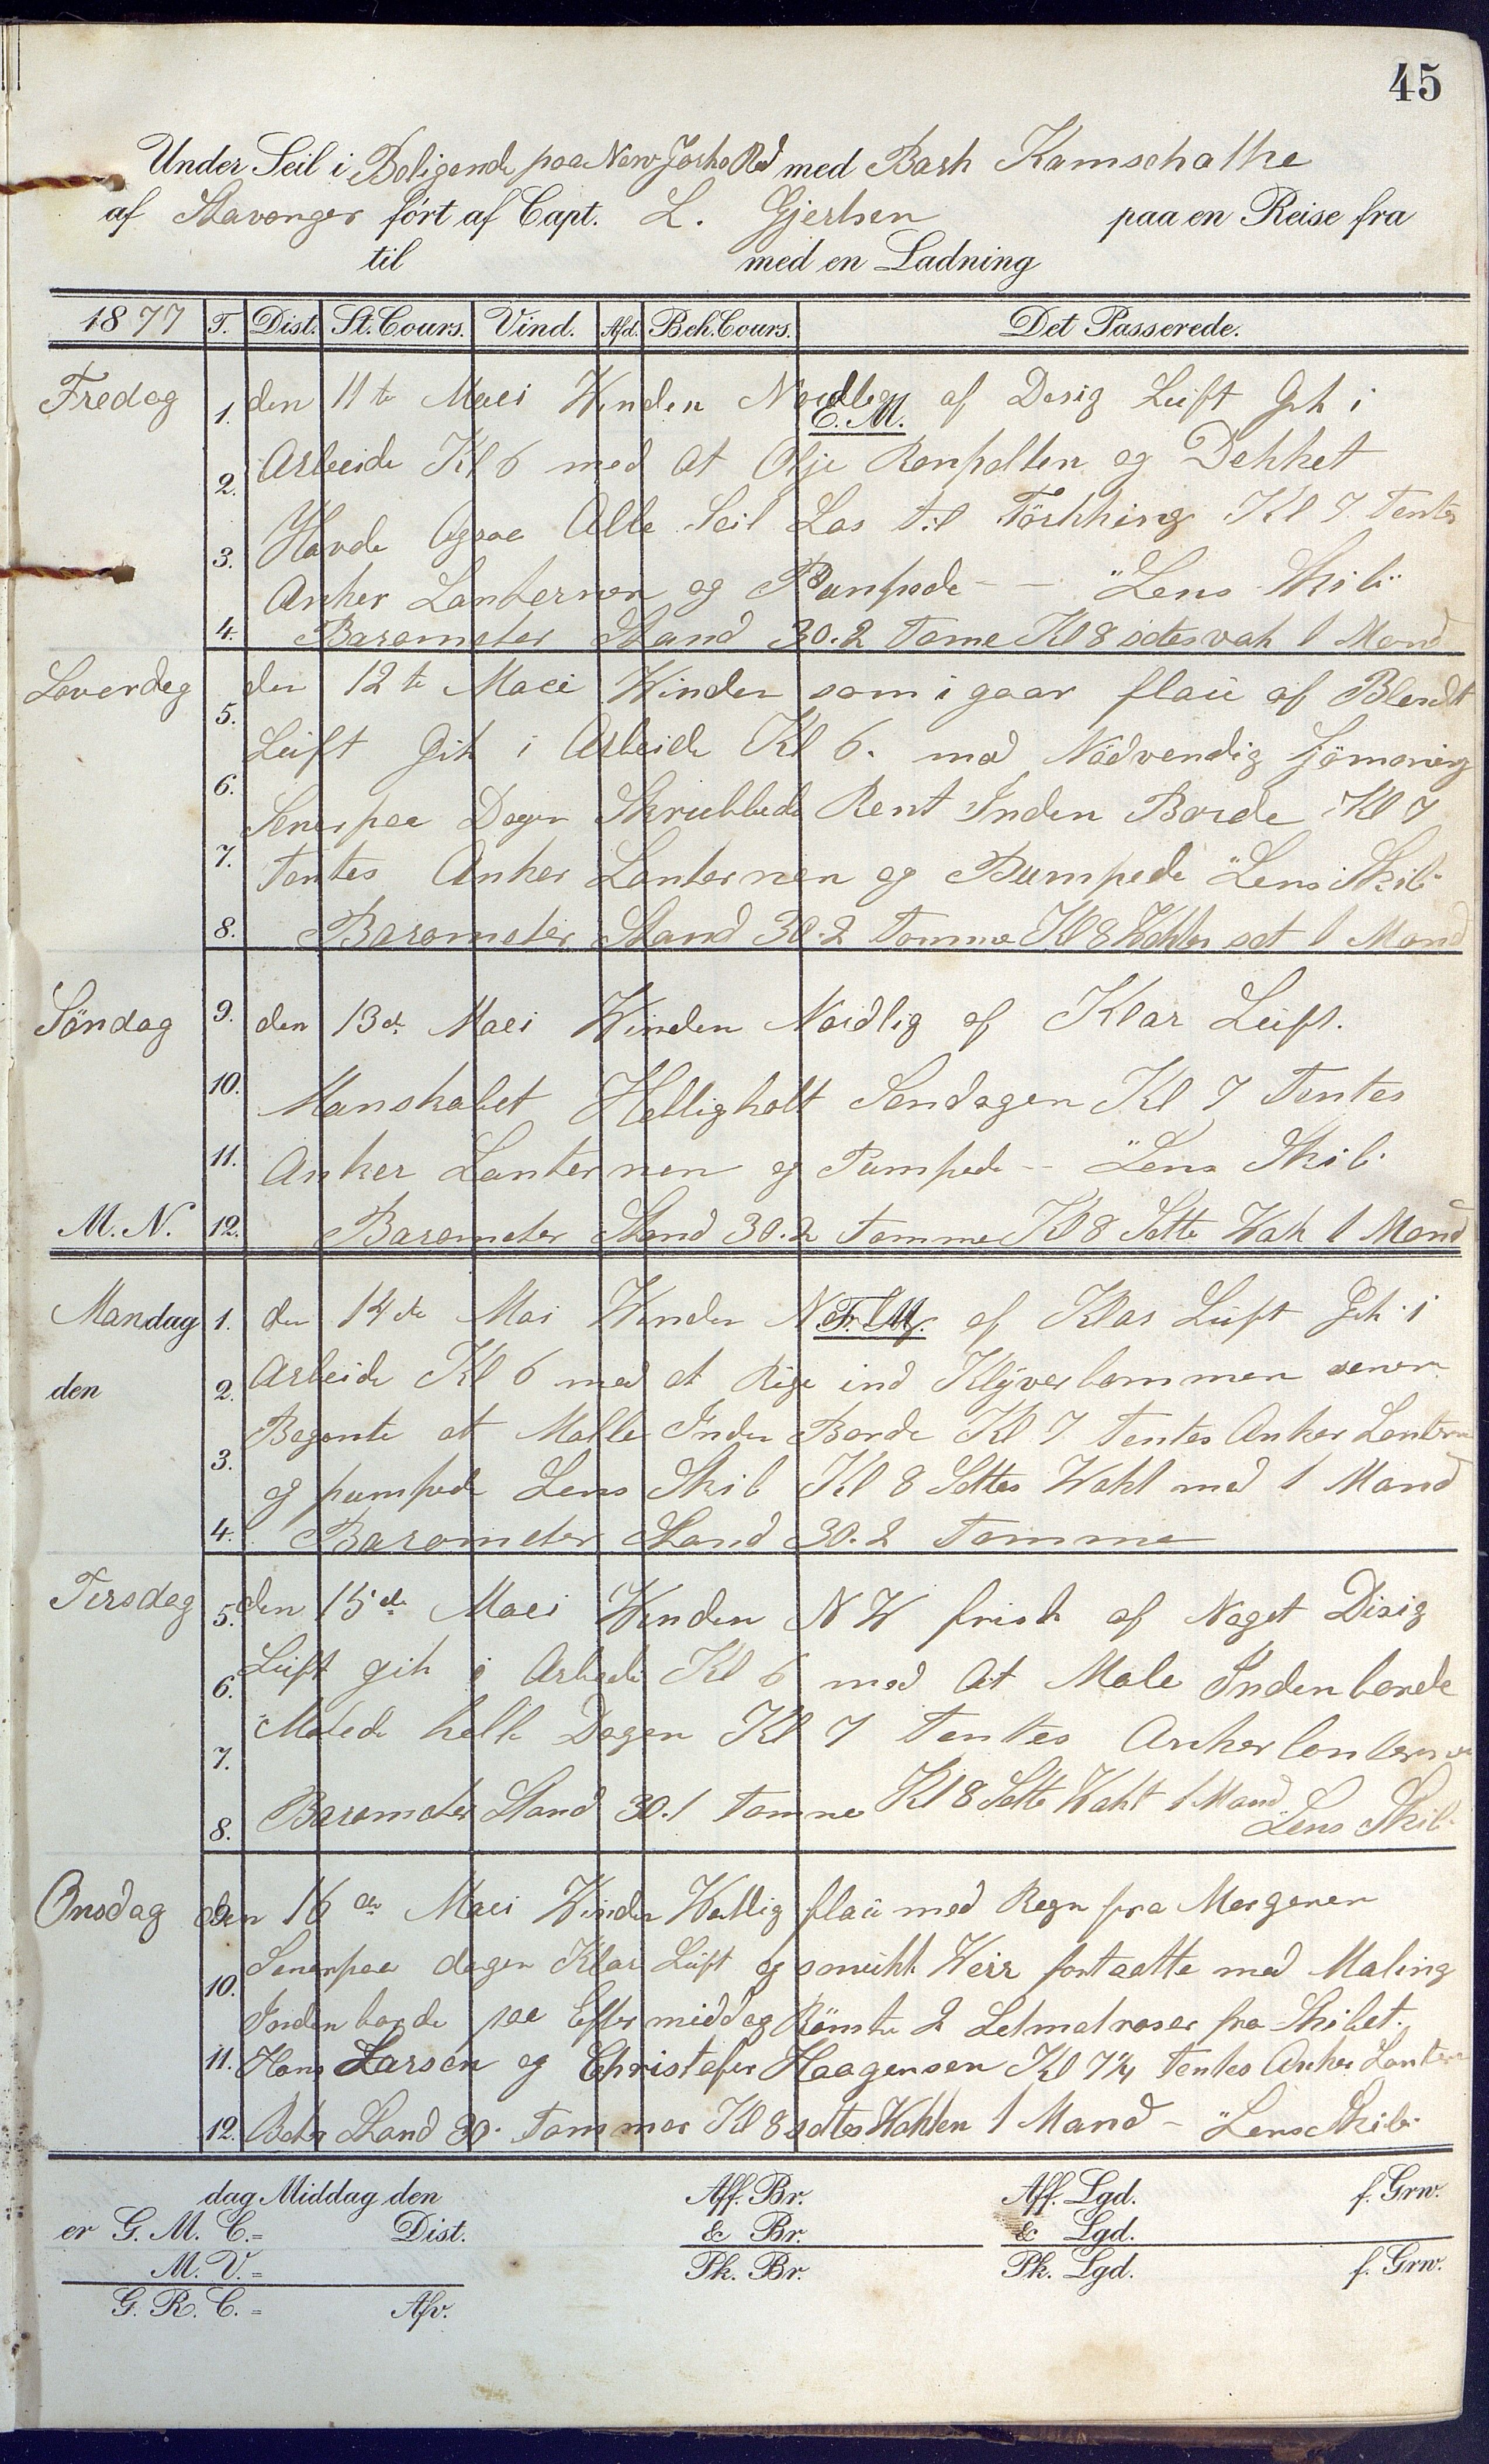 45
Under Seil i Beligende paa New Jorks Red med Bark Kamschatke
af Stavanger ført af Capt. L. Gjertsen paa en Reise fra
til med en Ladning
1877 T. Dist. St. Cours. Vind. Afd. Beh. Cours. Det Passerede.
Fredag 1. den 11te Maei Winden Nordlig af Desig Luft Gik i
E. M.
2. Arbeide Kl 6 med at Olje og Dekket
3. Havde Ogsaa Alle Seil Los til Törkking Kl 7 Tentes
Anker Lanternen og Pumpede - - "Lens Skib"
4. Barometer Stand 30.2 Tome Kl 8 sdtes vak 1 Mand
Løverdag den 12te Maei Winden som i gaar flau af Blendt
5.
Luft Gik i Arbeide Kl 6. med Nödvendig Sjömaning
6.
Senerpaa Dagen Skrubbede Rent Inden Borde Kl 7
7. Tentes Anker Lanternen og Pumpede "Lens Skib"
8. Barometer Stand 30.2 Tomme Kl 8 Wakten set 1 Mand
Söndag 9. den 13de Maei Winden Nordlig af Klar Luft.
10. Manskabet Helligholt Søndagen Kl 7 Tentes
11. Anker Lanternen og Pumpede -- "Lens Skib"
M. N. 12. Barometer Stand 30.2 Tomme Kl 8 Sette Wak 1 Mand
Mandag 1. den 14de Mai Winden af Klar Luft Gik i
F. M.
den 2. Arbeide Kl 6 med at Rige ind Klyverbommen senere
Begynte at Malle Inden Borde Kl 7 Tentes Anker Lantern
3. og pumpede Lens Skib Kl 8 Settes Wakt med 1 Mand
4. Barometer Stand 30.2 Tomme
Tirsdag 5. den 15de Maei Winden NW frisk af Noget Disig
6. Luft gik i Arbeide Kl 6 med At Male Indenborde
Malede helle Dagen Kl 7 Tentes Ankerlanternen
7.
8. Barometer Stand 30.1 Tomme Kl 8 Sette Wakt 1 Mand Lens Skib
Onsdag 9. den 16de Maei Winden Westlig flau med Regn fra Morgenen
10. Senerpaa dagen Klar Luft og smukt Weir fortsatte med Maling
Inden borde paa Eftermiddag Römte 2 Letmatroser fra Skibet.
11. Hans Larsen og Christofer Haagensen Kl 7¼ Tentes Anker Lantern
12. Stand 30. Tommer Kl 8 sdtes Wakten 1 Mand - "Lens Skib"
dag Middag den Aff. Br. Aff. Lgd. f. Grw.
er G. M. C. = Dist. & Br. & Lgd.
M. V. = Pk. Br. Pk. Lgd. f. Grw.
G. R. C. = Afv.